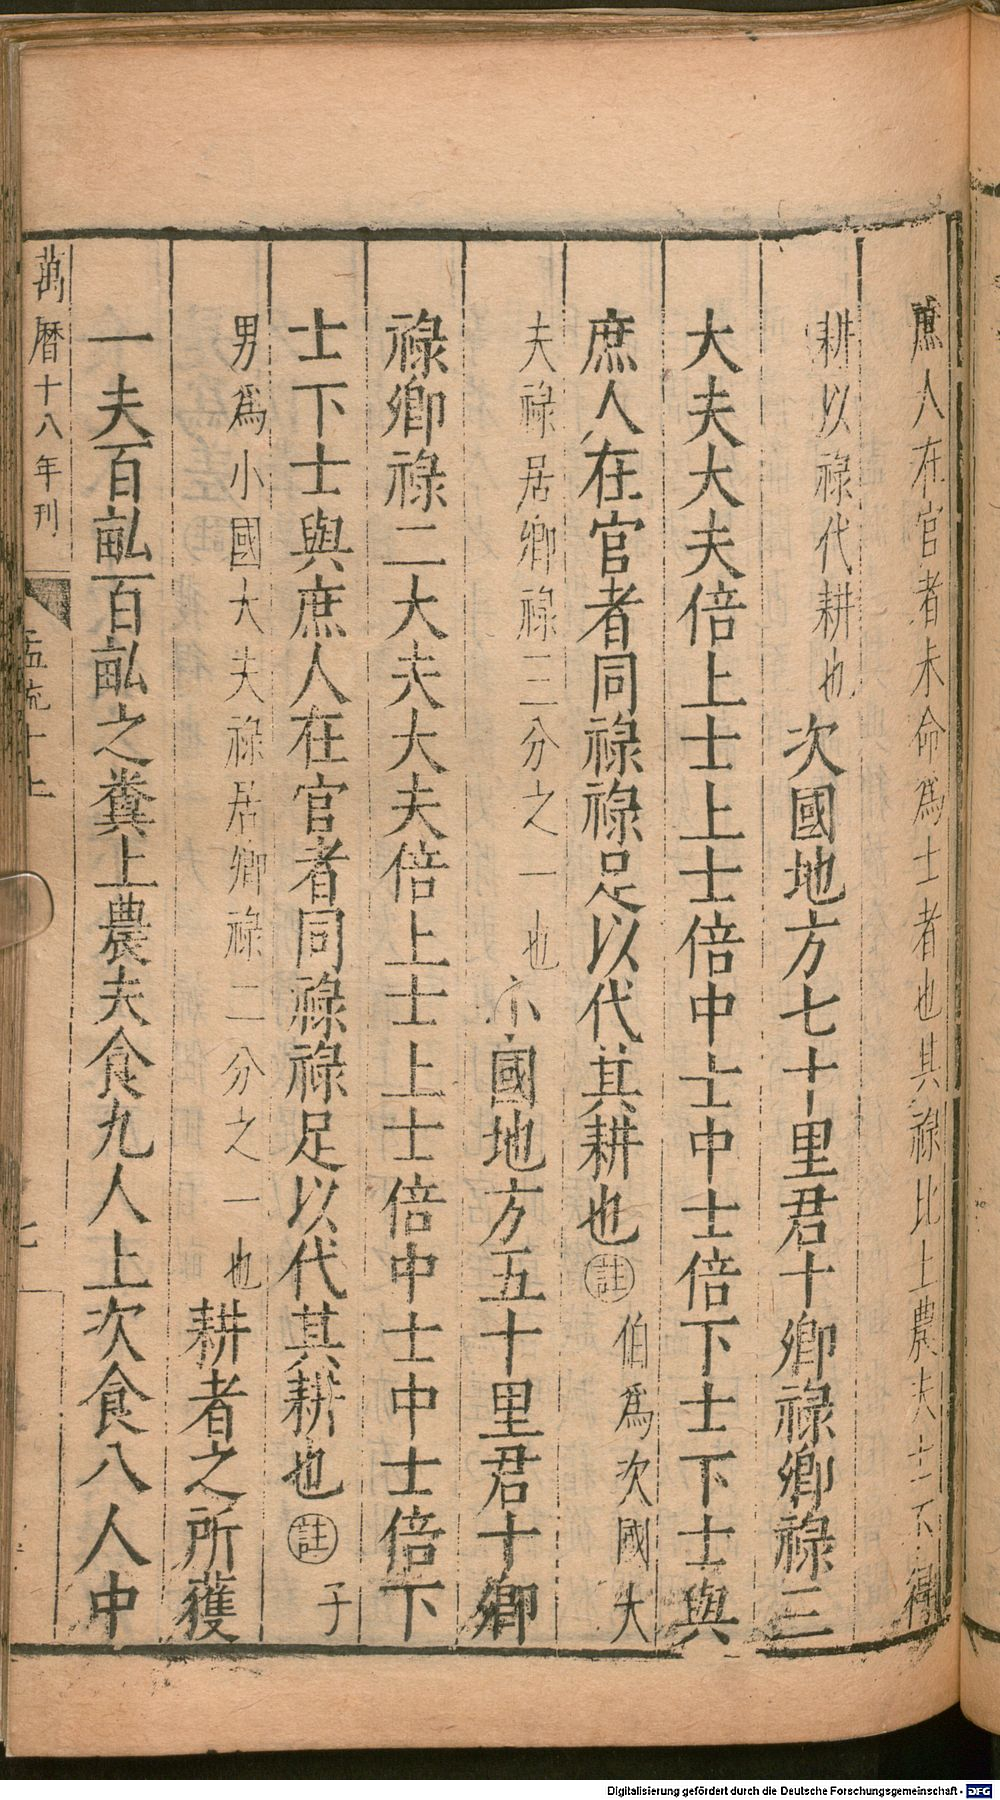 庶人在官者未命爲士者也其祿比上農夫士不得
耕以祿代耕也次國地方七十里君十卿祿卿祿三
大夫大夫倍上士上士倍中士中士倍下士下士與
庶人在官者同祿祿足以代其耕也註伯爲次國大
夫祿居卿祿三分之一也小國地方五十里君十卿
祿卿祿二大夫大夫倍上士上士倍中士中士倍下
士下士與庶人在官者同祿祿足以代其耕也註子
男爲小國大夫祿居卿祿二分之一也耕者之所獲
一夫百畝百畝之糞上農夫食九人上次食八人中
萬曆十八年刊
孟疏十上
七
Digitalisierung gefördert durch die Deutsche Forschungsgemeinschaft - DFG